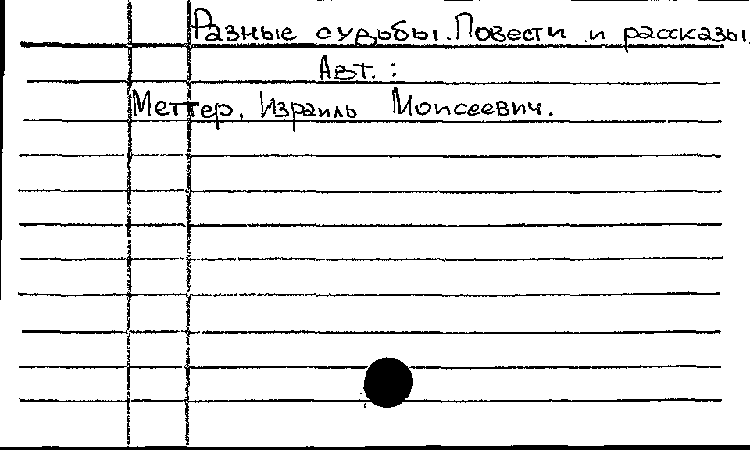 Разные судьбы. Повести и рассказы.
Авт.:
Меттер, Израиль Моисеевич.